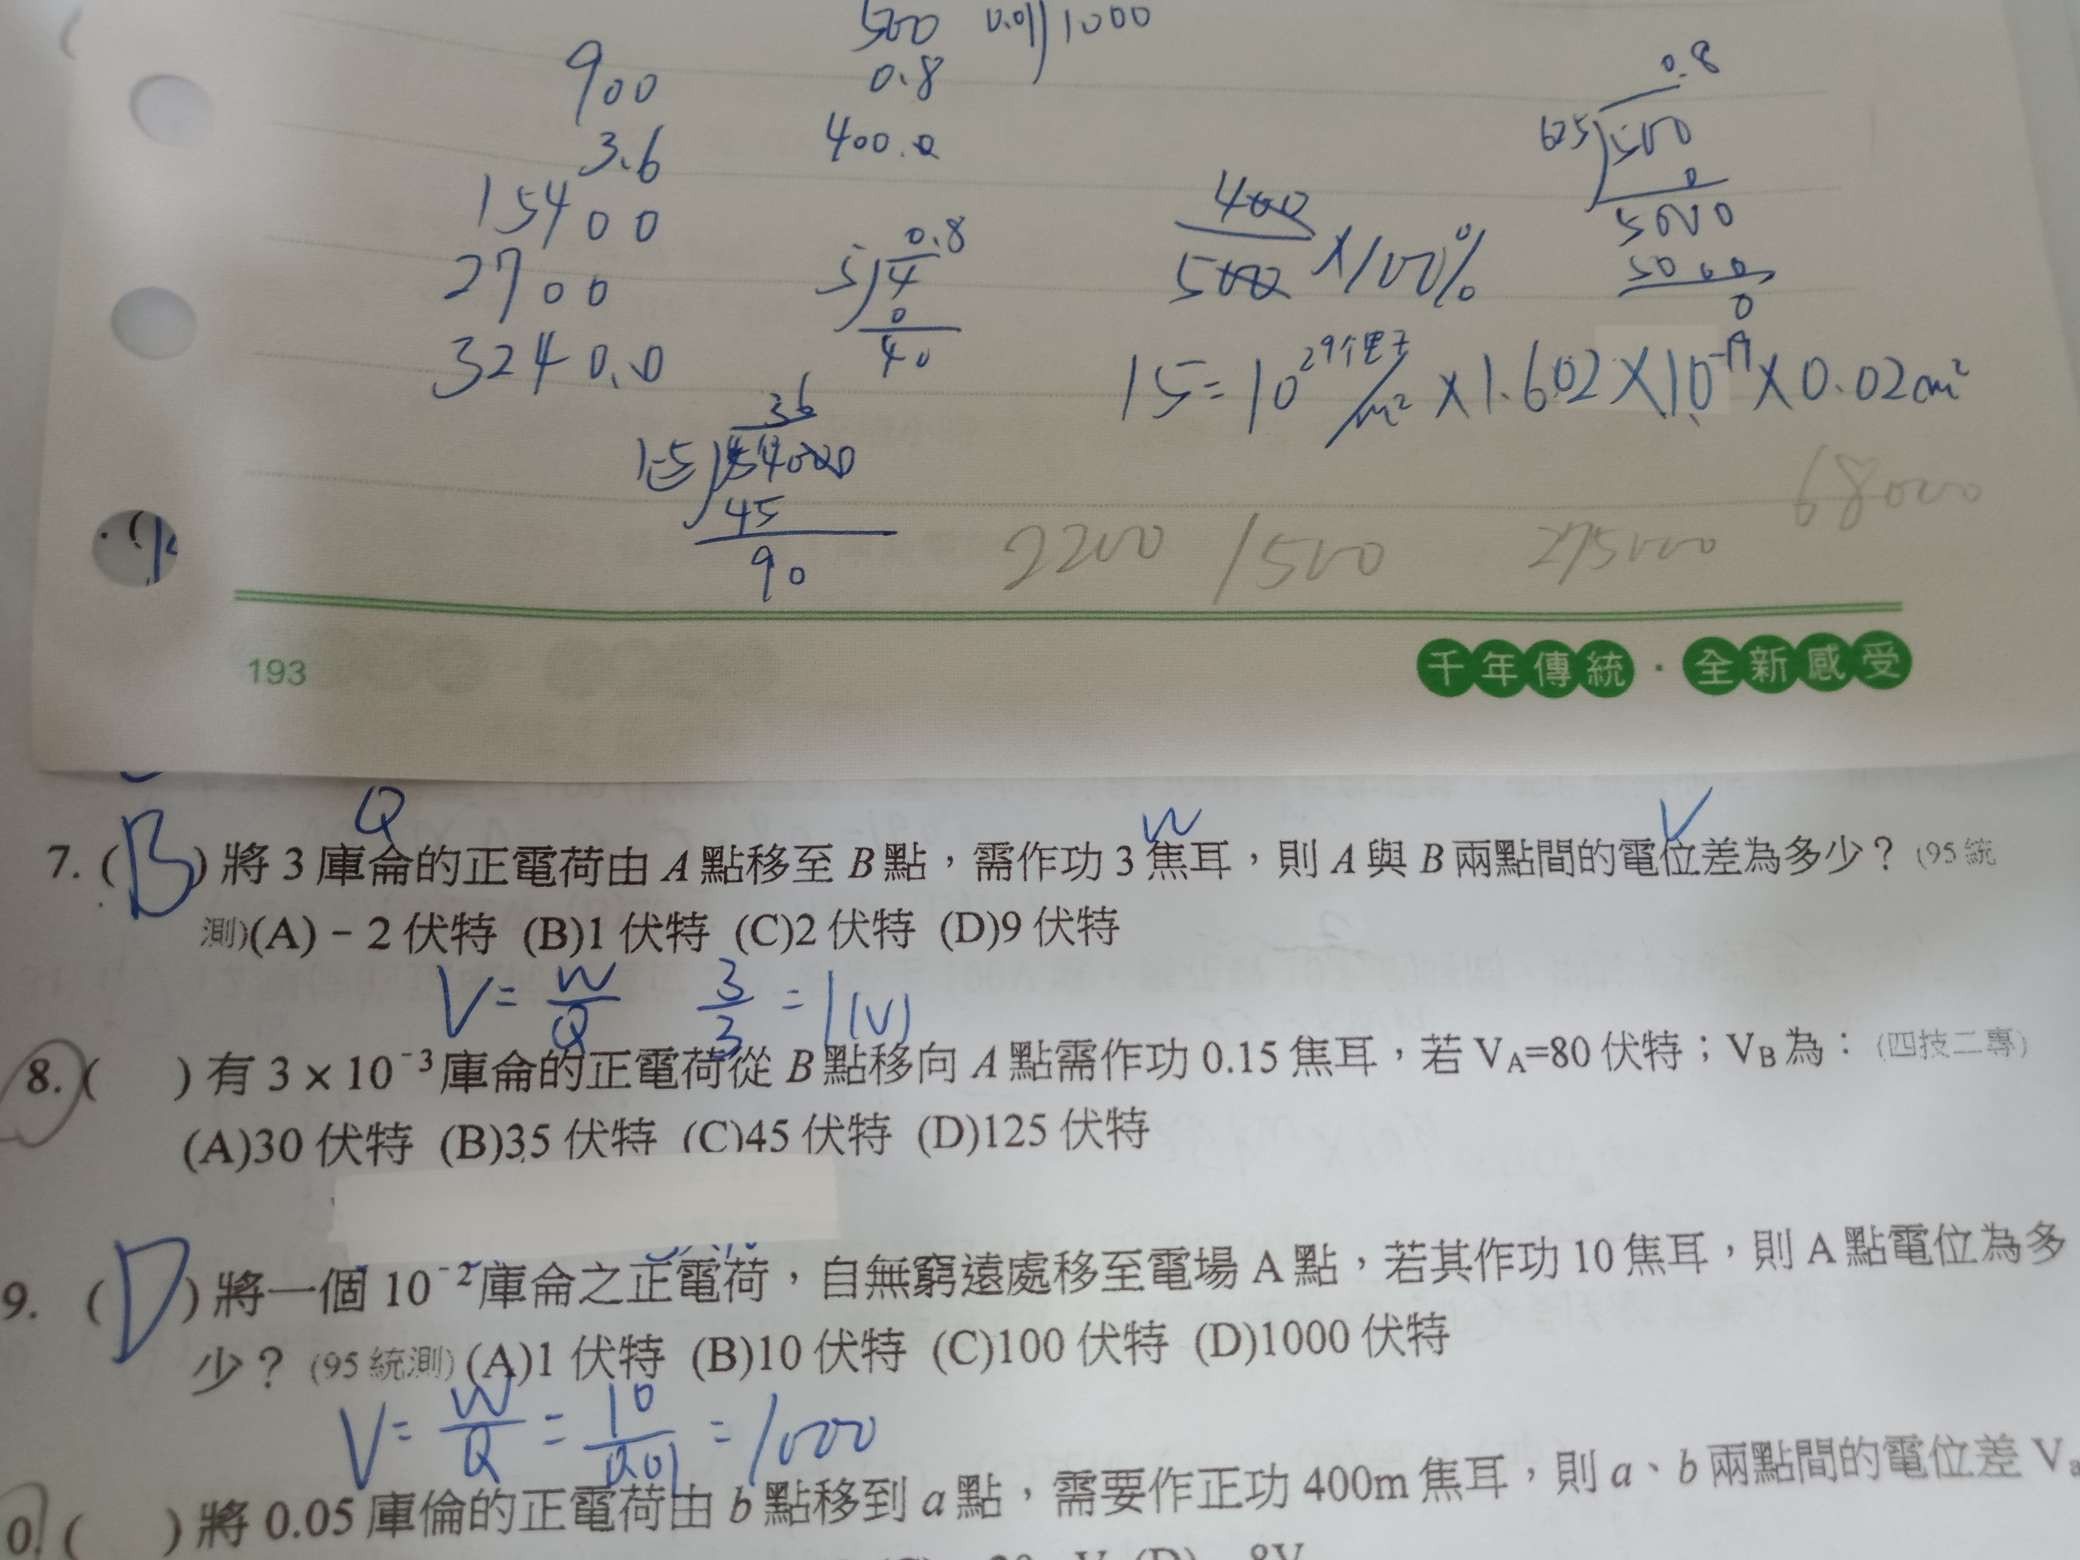 500 0.01)1000
900 0.8 0.8
3.6 400.0 625)500
15400 400/500 ×100% 0
2700 0.8 5000
5)4 5000
0 0
32400.0 40 15=10²⁹個電子/m² ×1.602×10⁻¹⁹×0.02cm²
36
15)54000 68000
45 2200 1500 275000
90
193 千年傳統·全新感受
Q W V
7. (B) 將 3 庫侖的正電荷由 A 點移至 B 點,需作功 3 焦耳,則 A 與 B 兩點間的電位差為多少? (95 統
測)(A)－2 伏特 (B)1 伏特 (C)2 伏特 (D)9 伏特
V=W/Q 3/3=1(V)
8. ( ) 有 3×10⁻³ 庫侖的正電荷從 B 點移向 A 點需作功 0.15 焦耳,若 VA=80 伏特;VB 為: (四技二專)
(A)30 伏特 (B)35 伏特 (C)45 伏特 (D)125 伏特
9. (D) 將一個 10⁻² 庫侖之正電荷,自無窮遠處移至電場 A 點,若其作功 10 焦耳,則 A 點電位為多
少? (95 統測) (A)1 伏特 (B)10 伏特 (C)100 伏特 (D)1000 伏特
V=W/Q=10/0.01=1000
0. ( ) 將 0.05 庫倫的正電荷由 b 點移到 a 點,需要作正功 400m 焦耳,則 a、b 兩點間的電位差 Va